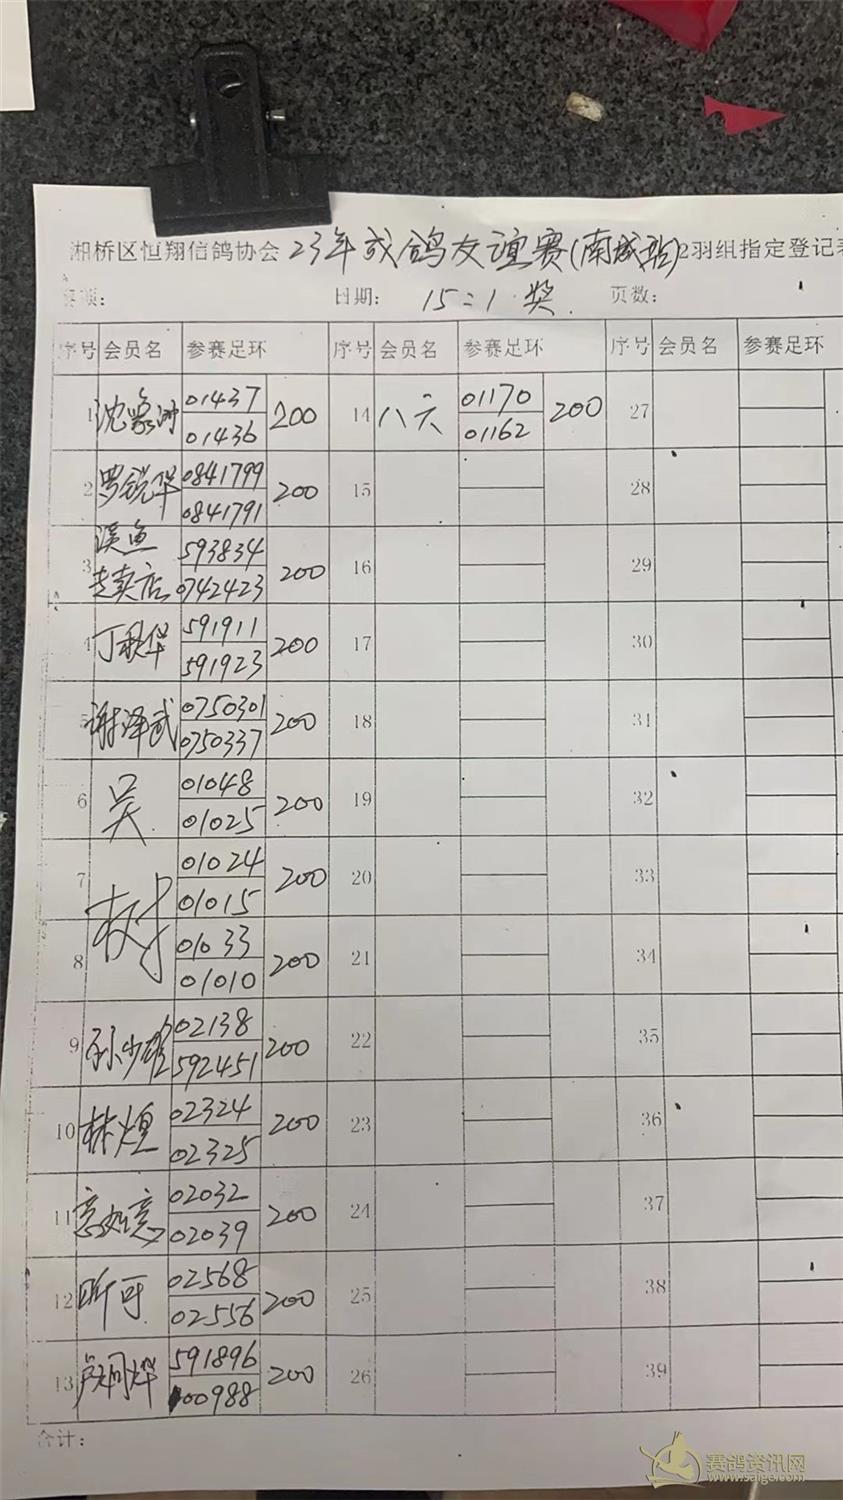 湘桥区恒翔信鸽协会 23年成鸽友谊赛(南城站)2羽组指定登记表
日期: 15=1 奖 页数:
序号 会员名 参赛足环 序号 会员名 参赛足环 序号 会员名 参赛足环
1 01437 200 14 八六 01170 200 27
01436 01162
2 罗锐华 0841799 200 15 28
0841791
3 渔鱼 593834 200 16 29
专卖店 0742423
4 丁秋华 591911 200 17 30
591923
5 谢泽武 0750301 200 18 31
0750337
6 吴 01048 200 19 32
01025
7 树 01024 200 20 33
01015
8 01033 200 21 34
01010
9 孙少雄 02138 200 22 35
592451
10 林煌 02324 200 23 36
02325
11 意如意 02032 200 24 37
02039
12 昕可 02568 200 25 38
02556
13 卢炯烨 591896 200 26 39
00988
合计:
赛鸽资讯网
www.saige.com